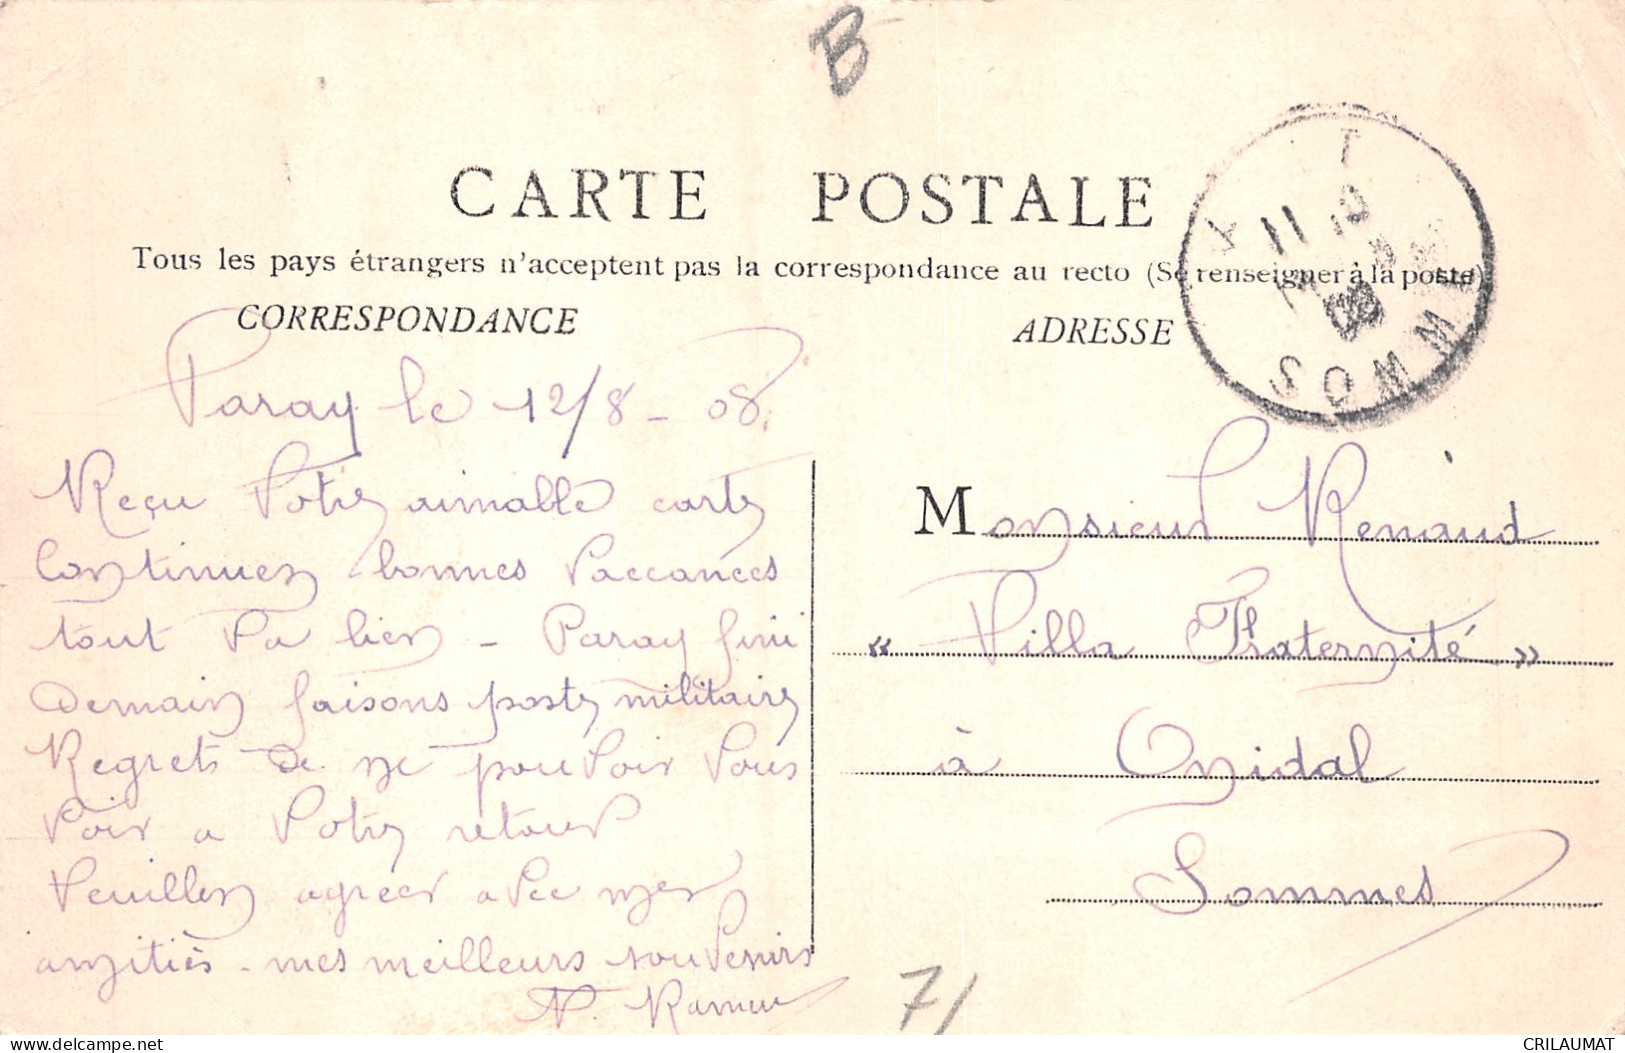 B
CARTE POSTALE
Tous les pays étrangers n'acceptent pas la correspondance au recto (Se renseigner à la poste)
CORRESPONDANCE
ADRESSE
Paray le 12/8 - 08.
Reçu Votre aimable carte
Continuez bonnes Vaccances
tout Va bien - Paray fini
Demain faisons poste militaire
Regrets de ne pouVoir Vous
Voir a Votre retour
Veuillez agreer aVec mes
amitiès - mes meilleurs souVenirs
Monsieur Renaud
« Villa Fraternité »
à Onidal
Sommes
11 10
SOMME
71
delcampe.net
CRILAUMAT